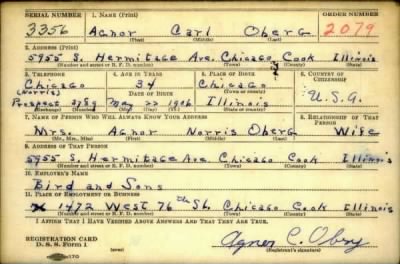 SERIAL NUMBER 1. NAME (Print) ORDER NUMBER
3356 Agnor Carl Oberg 2079
(First) (Middle) (Last)
2. ADDRESS (Print)
5955 S. Hermitage Ave. Chicago, Cook Illinois
(Number and street or R. F. D. number) (Town) (County) (State)
3. TELEPHONE 4. AGE IN YEARS 5. PLACE OF BIRTH 6. COUNTRY OF CITIZENSHIP
Chicago 34 Chicago
(Norris) DATE OF BIRTH (Town or county) U.S.A.
Prospect 3789 May 22 1906 Illinois
(Exchange) (Number) (Mo.) (Day) (Yr.) (State or country)
7. NAME OF PERSON WHO WILL ALWAYS KNOW YOUR ADDRESS 8. RELATIONSHIP OF THAT PERSON
Mrs. Agnor Norris Oberg Wife
(Mr., Mrs., Miss) (First) (Middle) (Last)
9. ADDRESS OF THAT PERSON
5955 S. Hermitage Ave. Chicago Cook Illinois
(Number and street or R. F. D. number) (Town) (County) (State)
10. EMPLOYER'S NAME
Bird and Sons
11. PLACE OF EMPLOYMENT OR BUSINESS
1472 West 76th St. Chicago Cook Illinois
(Number and street or R. F. D. number) (Town) (County) (State)
I AFFIRM THAT I HAVE VERIFIED ABOVE ANSWERS AND THAT THEY ARE TRUE.
REGISTRATION CARD
D. S. S. Form 1 (over) Agnor C. Oberg
(Registrant's signature)